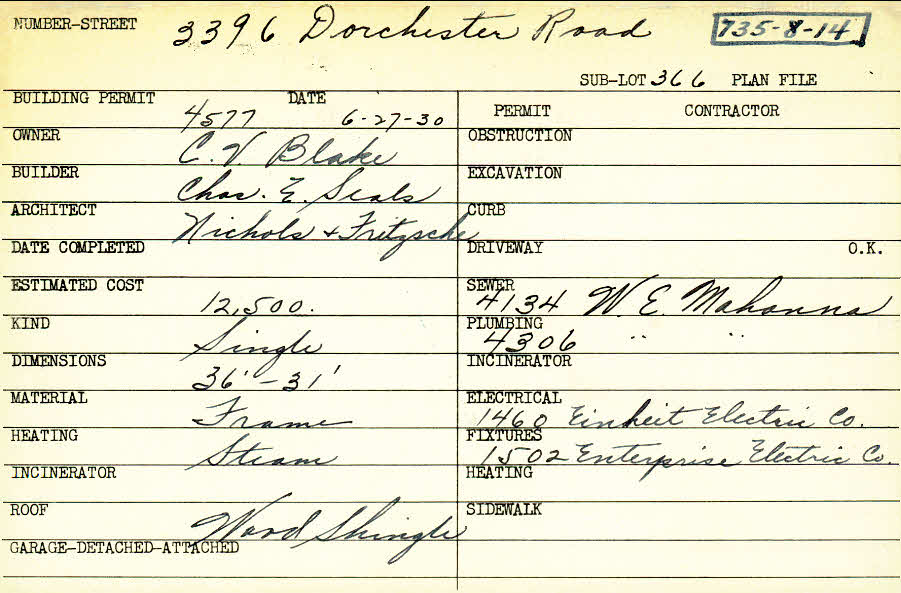 NUMBER-STREET 3396 Dorchester Road 735-8-14
SUB-LOT 366 PLAN FILE
BUILDING PERMIT 4577 DATE 6-27-30
PERMIT CONTRACTOR
OWNER C. V. Blake
OBSTRUCTION
BUILDER Chas. E. Seals
EXCAVATION
ARCHITECT Nichols + Fritzsche
CURB
DATE COMPLETED
DRIVEWAY O.K.
ESTIMATED COST 12,500.
SEWER 4134 W. E. Mahanna
KIND Single
PLUMBING 4306 " "
DIMENSIONS 36' - 31'
INCINERATOR
MATERIAL Frame
ELECTRICAL 1460 Einheit Electric Co.
HEATING Steam
FIXTURES 1502 Enterprise Electric Co.
INCINERATOR
HEATING
ROOF Wood Shingle
SIDEWALK
GARAGE-DETACHED-ATTACHED